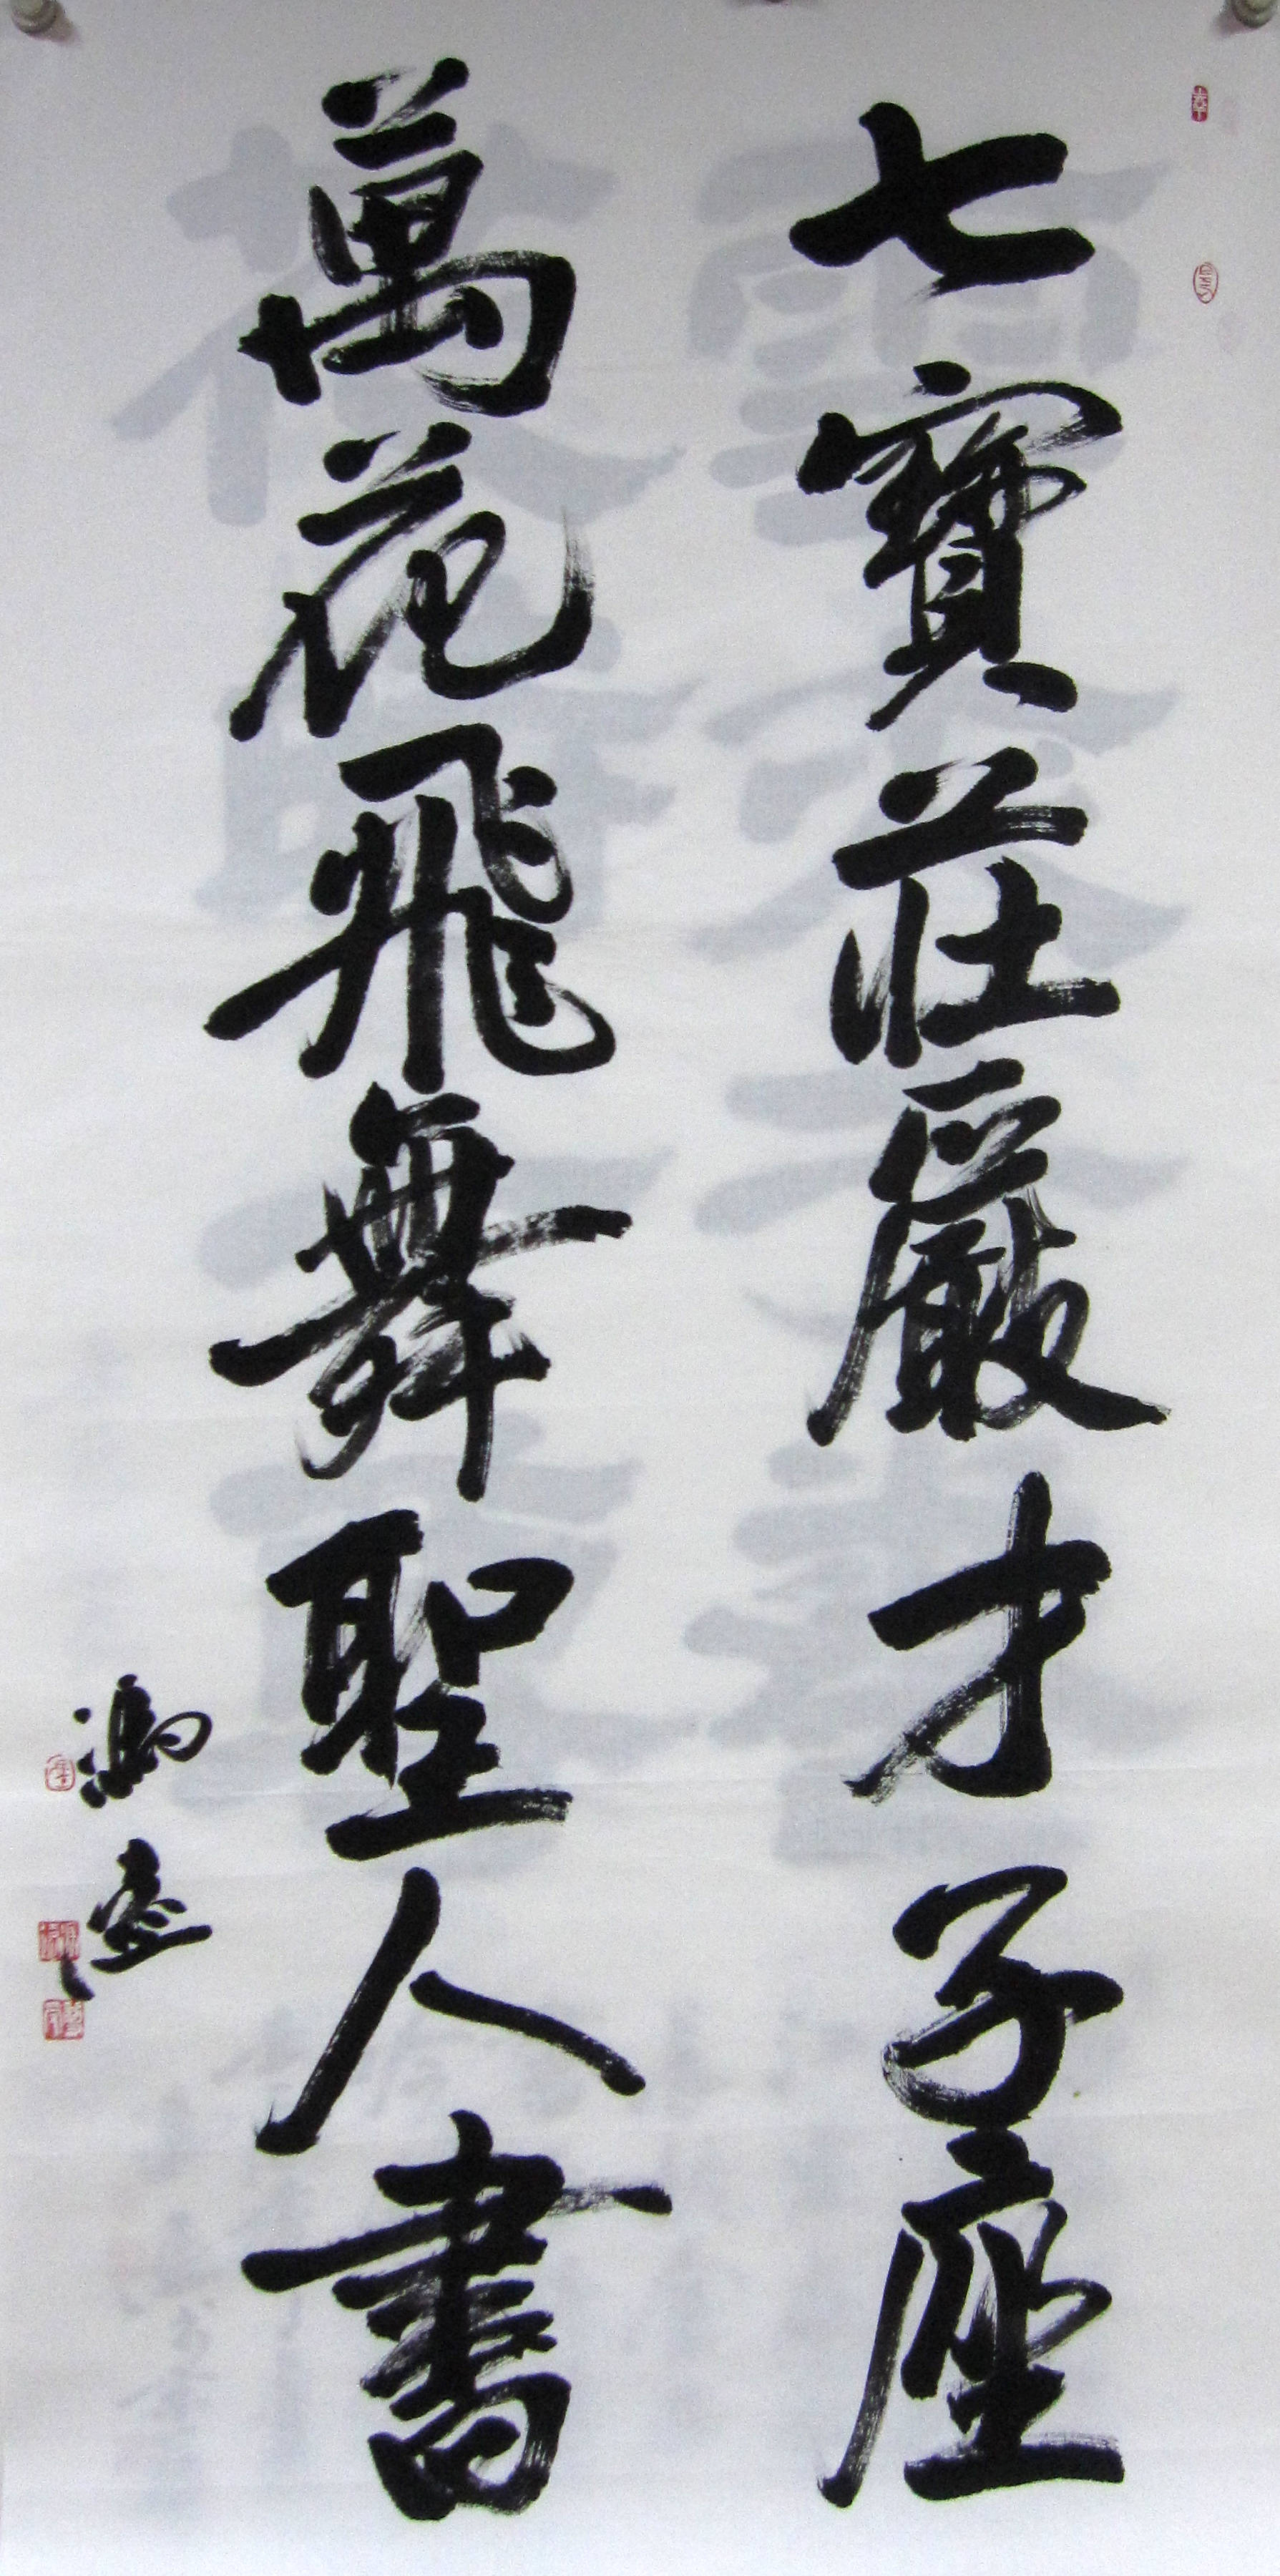 七寶莊嚴才子座
萬花飛舞聖人書